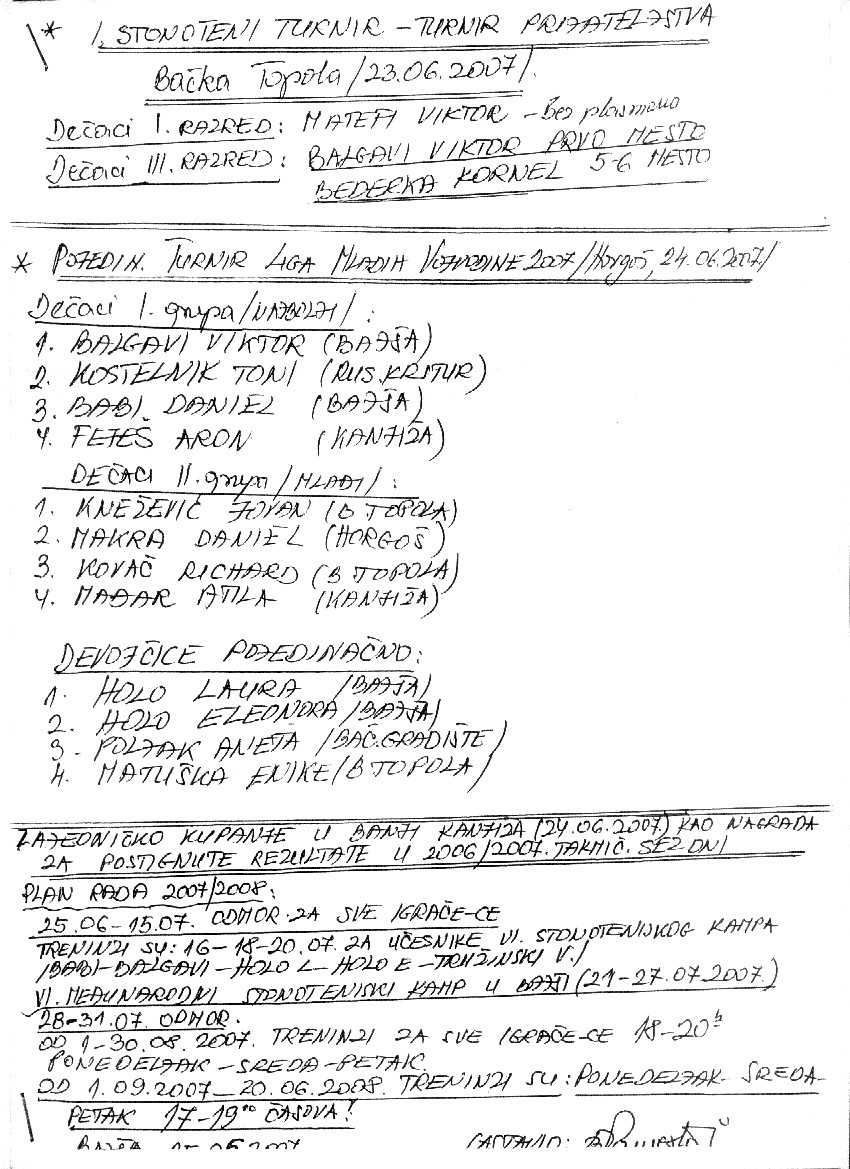 * I. STONOTENI TURNIR - TURNIR PRIJATELJSTVA
Bačka Topola /23.06.2007/.
Dečaci I. RAZRED: MATEFI VIKTOR - Bez plasmana
Dečaci III. RAZRED: BALGAVI VIKTOR PRVO MESTO
BEDERKA KORNEL 5-6 MESTO
* POJEDIN. TURNIR LIGA MLADIH VOJVODINE 2007 /Horgoš, 24.06.2007/
Dečaci I. grupa /NAJBOLJI/:
1. BALGAVI VIKTOR (BAJŠA)
2. KOSTELNIK TONI (RUS.KRSTUR)
3. BABI DANIEL (BAJŠA)
4. FEJEŠ ARON (KANJIŽA)
DEČACI II. grupa /MLAĐI/:
1. KNEŽEVIČ JOVAN (B TOPOLA)
2. MAKRA DANIEL (HORGOŠ)
3. KOVAČ RICHARD (B TOPOLA)
4. MAĐAR ATILA (KANJIŽA)
DEVOJČICE POJEDINAČNO:
1. HOLO LAURA /BAJŠA/
2. HOLO ELEONORA /BAJŠA/
3. POLJAK ANETA /BAČ.GRADIŠTE/
4. MATUŠKA ENIKE /B TOPOLA/
ZAJEDNIČKO KUPANJE U BANJI KANJIŽA (24.06.2007) KAO NAGRADA
ZA POSTIGNUTE REZULTATE U 2006/2007. TAKMIČ. SEZONI
PLAN RADA 2007/2008:
25.06-15.07. ODMOR ZA SVE IGRAČE-CE
TRENINZI SU: 16-18-20.07. ZA UČESNIKE VI. STONOTENIJSKOG KAMPA
/BABI-BALGAVI-HOLO L-HOLO E-TRUŽINSKI V./
VI. MEĐUNARODNI STONOTENISKI KAMP U BAJŠI (21-27.07.2007.)
28-31.07. ODMOR.
OD 1-30.08.2007. TRENINZI ZA SVE IGRAČE-CE 18-20h
PONEDELJAK-SREDA-PETAK.
OD 1.09.2007-20.06.2008. TRENINZI SU: PONEDELJAK-SREDA-
PETAK 17-19⁰⁰ ČASOVA!
SASTAVIO: